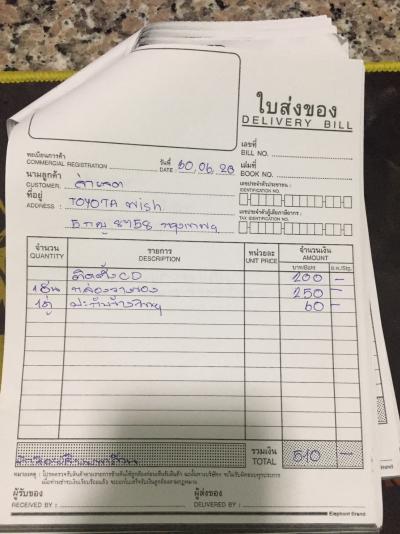 ใบส่งของ
DELIVERY BILL
ทะเบียนการค้า
COMMERCIAL REGISTRATION
วันที่
DATE 30,06,20
เลขที่
BILL NO.
เล่มที่
BOOK NO.
นามลูกค้า
CUSTOMER
ที่อยู่
ADDRESS : TOYOTA Wish
8958 กรุงเทพฯ
เลขประจำตัวประชาชน :
IDENTIFICATION NO.
เลขประจำตัวผู้เสียภาษีอากร :
TAX IDENTIFICATION NO.
จำนวน รายการ หน่วยละ จำนวนเงิน
QUANTITY DESCRIPTION UNIT PRICE AMOUNT
บาท/Baht ส.ต./Stg.
ติดตั้งCD 200 -
1อัน กล่องวางของ 250 -
1คู่ 60 -
รวมเงิน
TOTAL 510 -
ผู้รับของ
RECEIVED BY :
ผู้ส่งของ
DELIVERED BY :
Elephant Brand